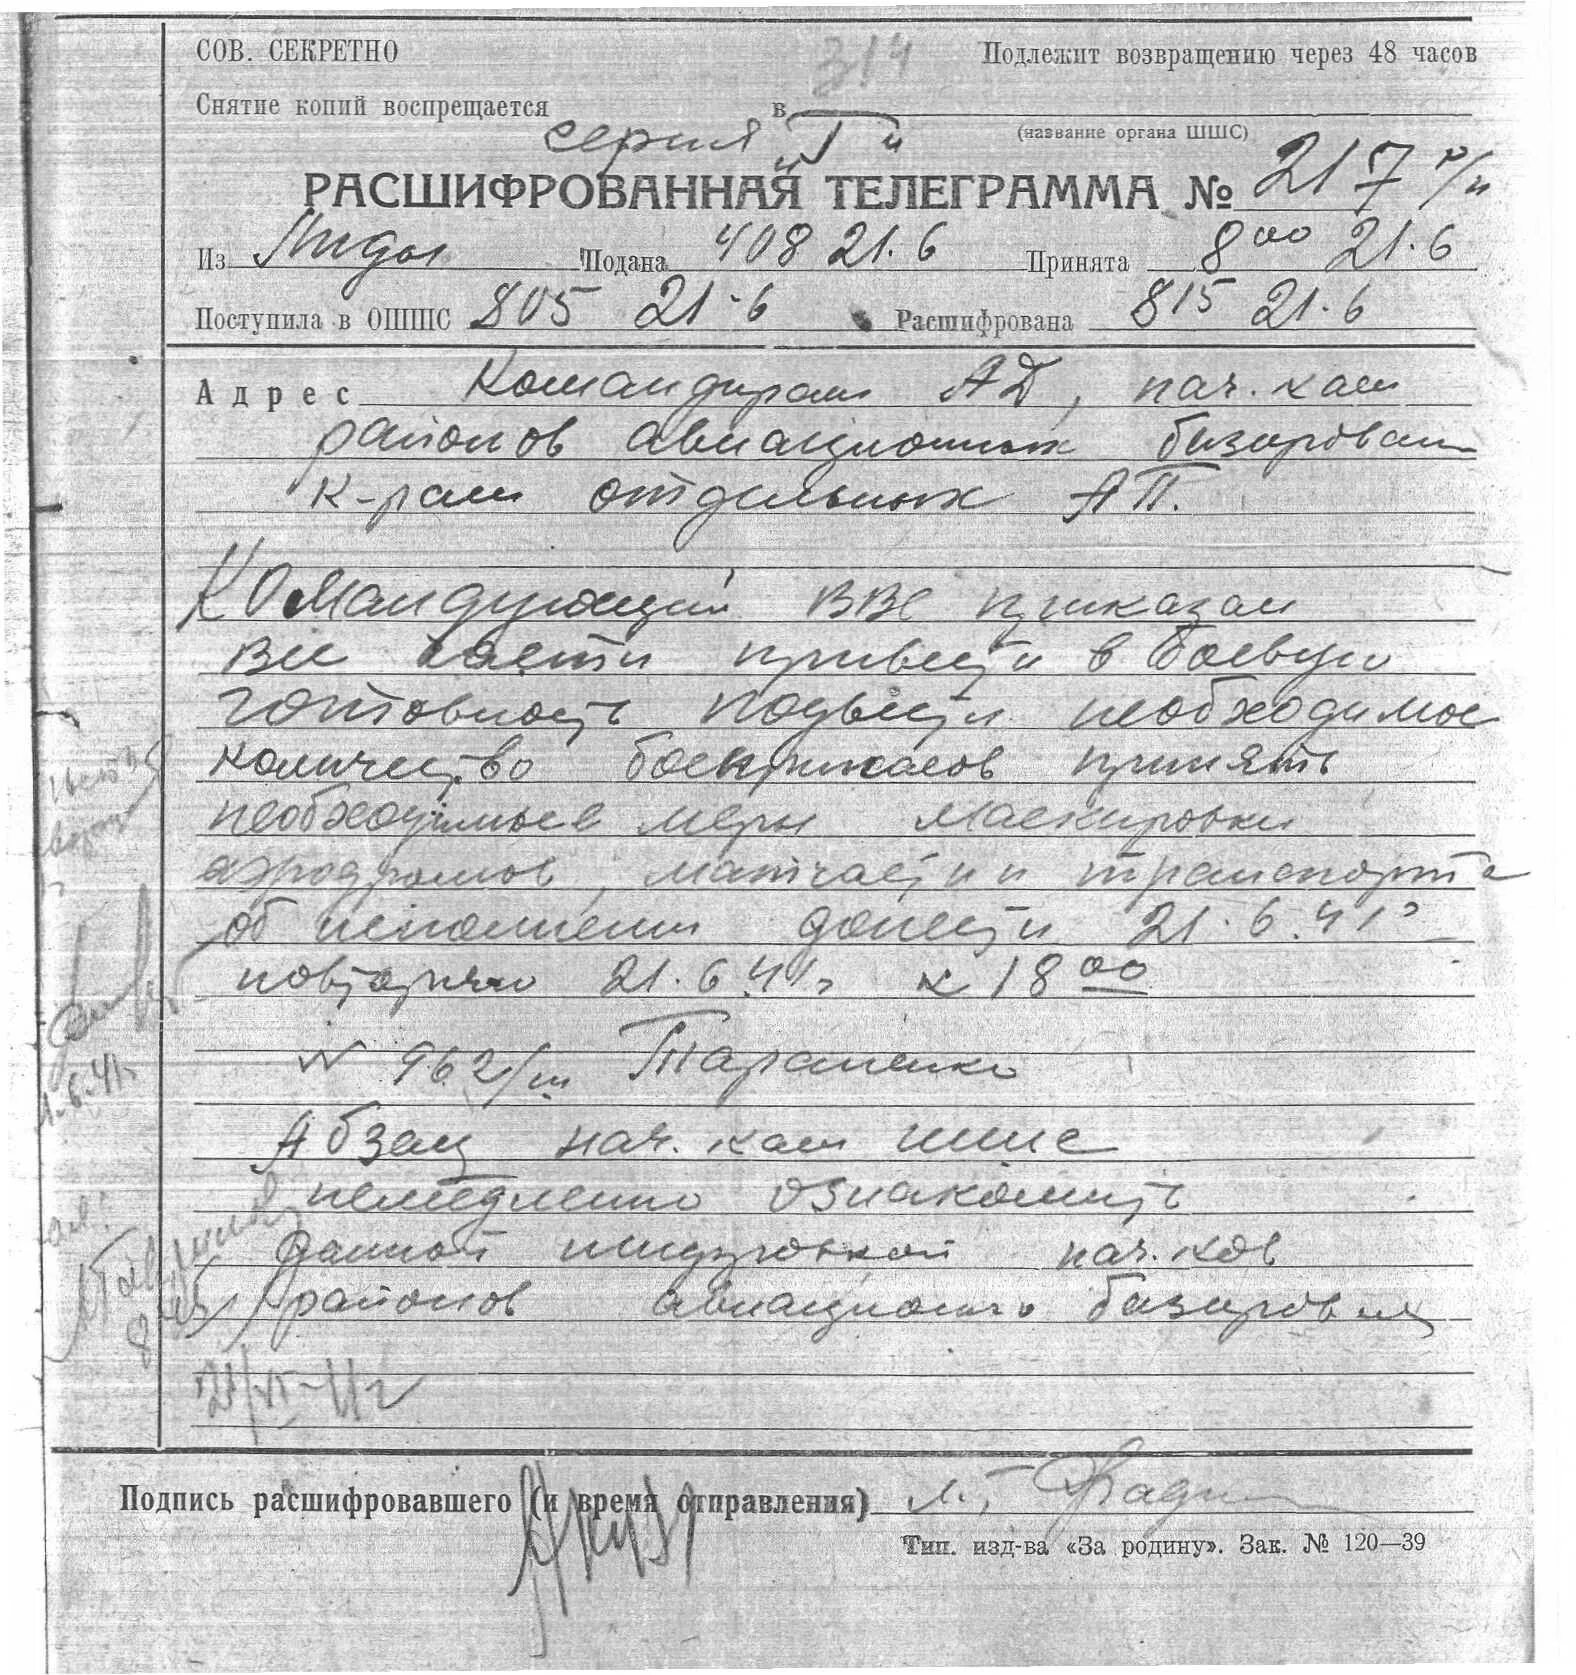 314
СОВ. СЕКРЕТНО Подлежит возвращению через 48 часов
Снятие копий воспрещается в
серия "Г" (название органа ШШС)
РАСШИФРОВАННАЯ ТЕЛЕГРАММА № 217
Из Лиды Подана 408 21.6 Принята 8 00 21.6
Поступила в ОШШС 805 21.6 Расшифрована 815 21.6
Адрес Командирам АД, нач.кам
районов авиационных базирован
к-рам отдельных АП.
Командующий ВВС приказал
все части привести в боевую
готовность подвести необходимое
количество боеприпасов принять
необходимые меры маскировки
аэродромов, матчасти и транспорта
об исполнении донести 21.6.41г
повторно 21.6.41г к 18 00
№ 962/ш Тараненко
Абзац нач.кам ШШС
немедленно ознакомить
данной шифровкой нач.ков
районов авиационно базиров
21/VI-41г
Подпись расшифровавшего (и время отправления)
Тип. изд-ва «За родину». Зак. № 120—39